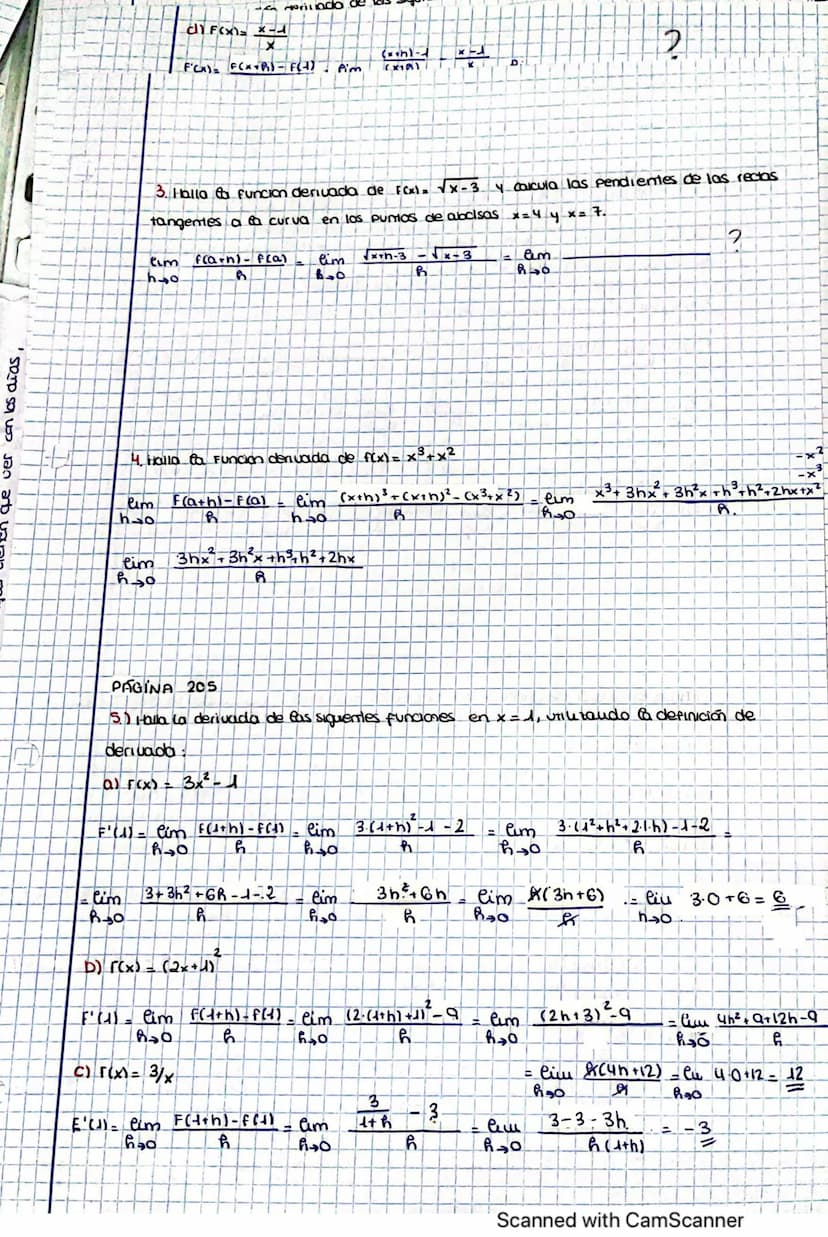 derivada de las
d) F(x) = x-1/x
F'(x) = F(x+h) - F(1) . lim (x+h)-1/(x+h) - x-1/x ?
3. Halla la funcion derivada de f(x) = √x-3 y calcula las pendientes de las rectas
tangentes a la curva en los puntos de abcisas x=4 y x=7.
lim h→0 f(a+h) - f(a)/h = lim h→0 √x+h-3 - √x-3/h = lim h→0 ?
que ver con los días,
4. Halla la Funcion derivada de f(x) = x³+x²
-x²
-x³
lim h→0 F(a+h)-F(a)/h = lim h→0 (x+h)³+(x+h)²-(x³+x²)/h = lim h→0 x³+3hx²+3h²x+h³+h²+2hx+x²/h.
lim h→0 3hx²+3h²x+h³+h²+2hx/h
PÁGINA 205
5.) Halla la derivada de las siguientes funciones en x=1, utilizando la definición de
derivada:
a) f(x) = 3x²-1
F'(1) = lim h→0 f(1+h)-f(1)/h = lim h→0 3·(1+h)²-1-2/h = lim h→0 3·(1²+h²+2·1·h)-1-2/h =
= lim h→0 3+3h²+6h-1-2/h = lim h→0 3h²+6h/h = lim h→0 h(3h+6)/h = lim h→0 3·0+6 = 6
b) f(x) = (2x+1)²
F'(1) = lim h→0 f(1+h)-f(1)/h = lim h→0 (2·(1+h)+1)²-9/h = lim h→0 (2h+3)²-9/h = lim h→0 4h²+9+12h-9/h
= lim h→0 h(4h+12)/h = lim h→0 4·0+12 = 12
c) f(x) = 3/x
F'(1) = lim h→0 F(1+h)-F(1)/h = lim h→0 3/1+h - 3/h = lim h→0 3-3-3h/h(1+h) = -3
Scanned with CamScanner